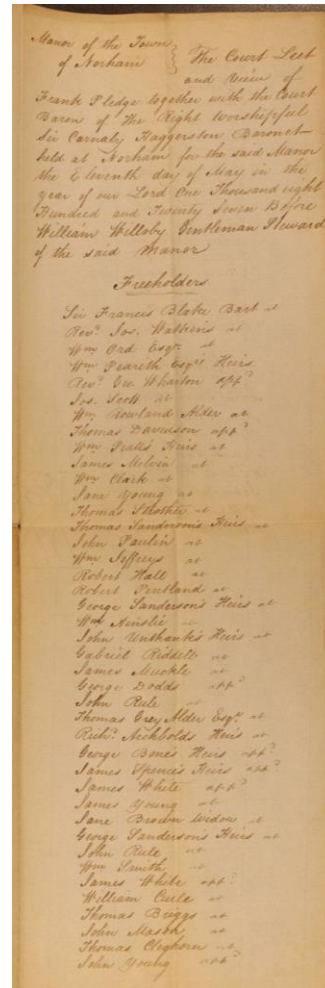 Manor of the Town
of Norham
The Court Leet
and View of
Frank Pledge together with the Court
Baron of The Right Worshipful
Sir Carnaby Haggerston Baronet
held at Norham for the said Manor
the Eleventh day of May in the
year of our Lord One Thousand eight
Hundred and Twenty Seven Before
William Willoby Gentleman Steward
of the said Manor
Freeholders
Sir Francis Blake Bart at
Revd. Jos. Watkins at
Wm Ord Esqr. at
Wm Peareth Esqrs Heirs
Revd. Geo. Wharton appd
Jos. Scott at
Wm Rowland Alder at
Thomas Davidson appd
Wm Heirs at
James Melvin at
Wm Clark at
Jane Young at
Thomas Strother at
Thomas Sanderson's Heirs at
John Paulin at
Wm Jeffreys at
Robert Hall at
Robert Pentland at
George Sanderson's Heirs at
Wm Ainslie at
John Unthank's Heirs at
Gabriel Riddell at
James Muckle at
George Dodds appd
John Rule at
Thomas Grey Alder Esqr at
Richd. Archbolds Heirs at
George Bone's Heirs appd
James Spence's Heirs appd
James White appd
James Young at
Jane Brown Widow at
George Sanderson's Heirs at
John Rule at
Wm Smith at
James White appd
William Curle at
Thomas Briggs at
John Mason at
Thomas Cleghorn at
John Young appd